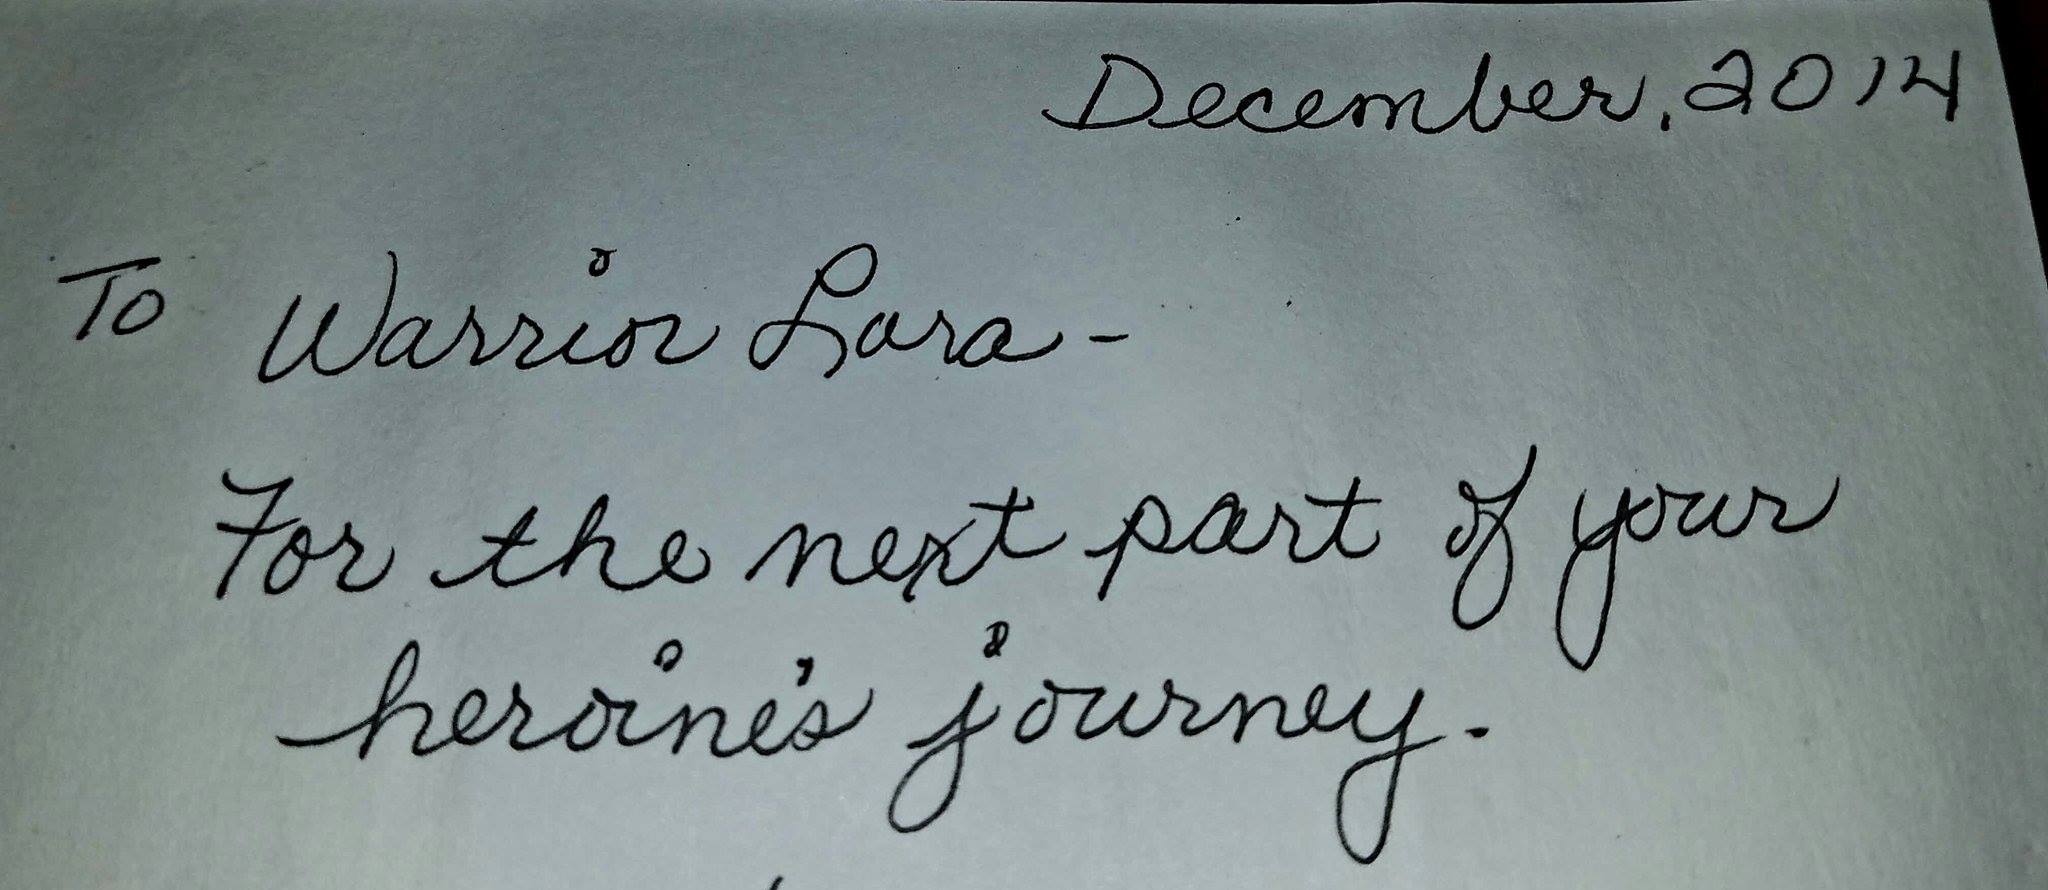 December, 2014
To Warrior Lara -
For the next part of your
heroine's journey.